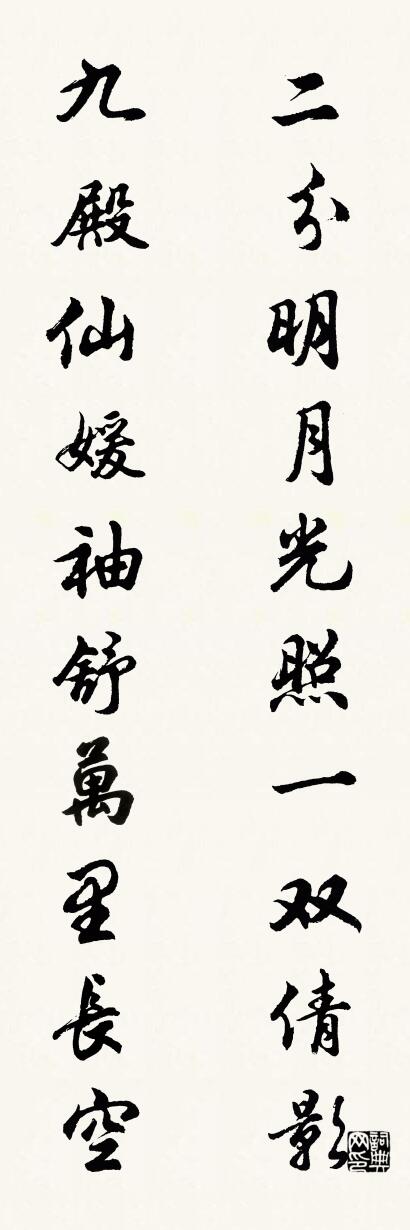 二分明月光照一双倩影
九殿仙媛袖舒萬里長空
詞典网印